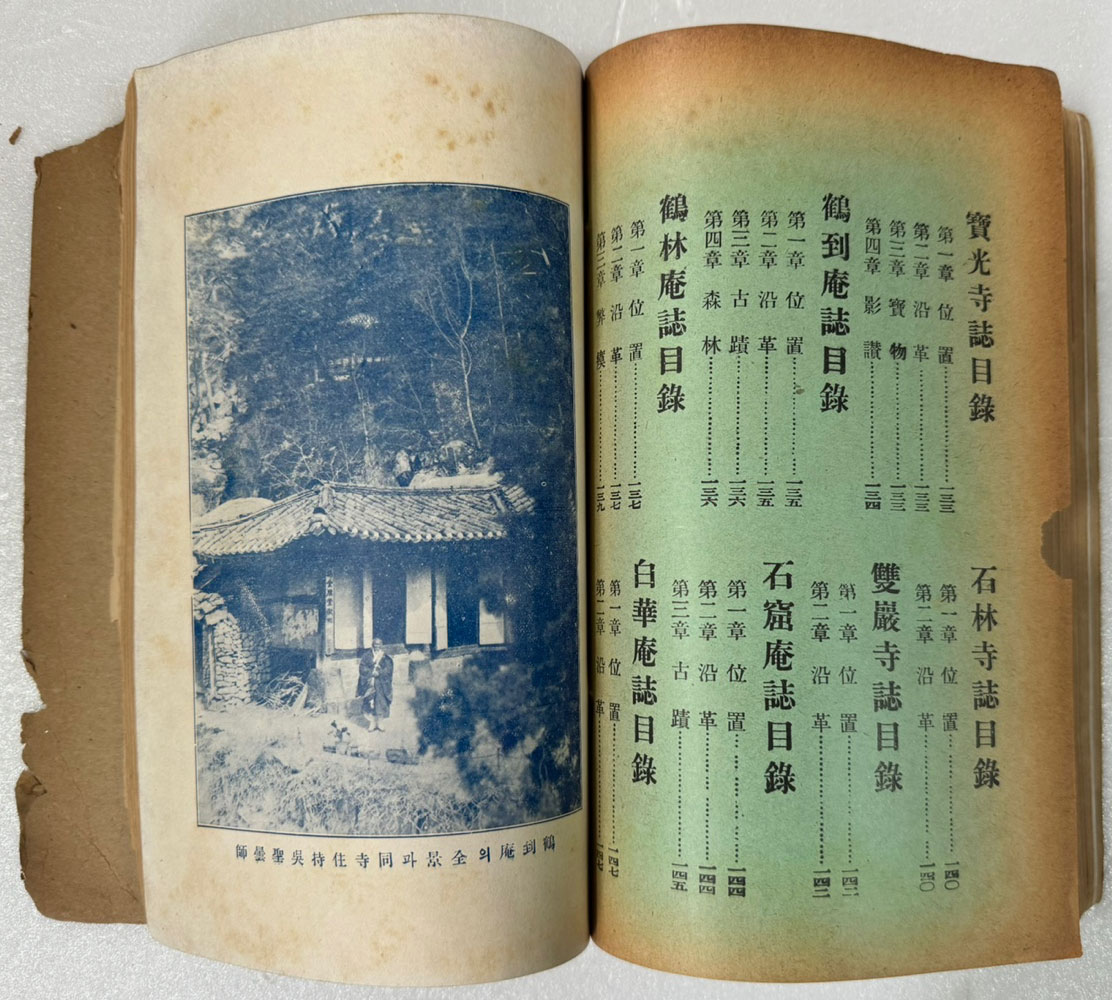 寶光寺誌目錄
第一章 位置……一三三
第二章 沿革……一三三
第三章 寶物……一三三
第四章 影讃……一三四
鶴到庵誌目錄
第一章 位置……一三五
第二章 沿革……一三五
第三章 古蹟……一三六
第四章 森林……一三六
鶴林庵誌目錄
第一章 位置……一三七
第二章 沿革……一三七
第三章……一三九
石林寺誌目錄
第一章 位置……一四〇
第二章 沿革……一四〇
雙巖寺誌目錄
第一章 位置……一四二
第二章 沿革……一四二
石窟庵誌目錄
第一章 位置……一四四
第二章 沿革……一四四
第三章 古蹟……一四五
白華庵誌目錄
第一章 位置……一四七
第二章 沿革……一四七
鶴到庵의全景과同寺住持吳聖曇師